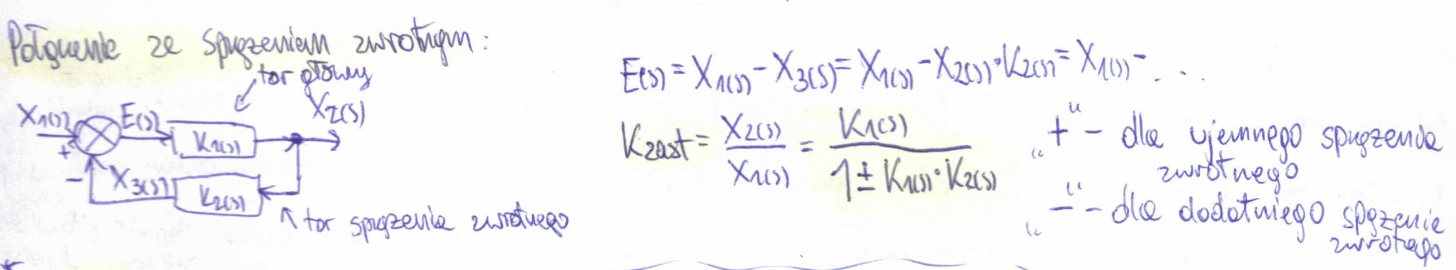 Połączenie ze sprzężeniem zwrotnym:
tor główny
X1(s) E(s) K1(s) X2(s)
+
−
X3(s) K2(s)
tor sprzężenia zwrotnego
E(s) = X1(s) − X3(s) = X1(s) − X2(s)·K2(s) = X1(s) − ...
Kzast = X2(s) / X1(s) = K1(s) / 1 ± K1(s)·K2(s)
„+” – dla ujemnego sprzężenia
zwrotnego
„−” – dla dodatniego sprzężenia
zwrotnego